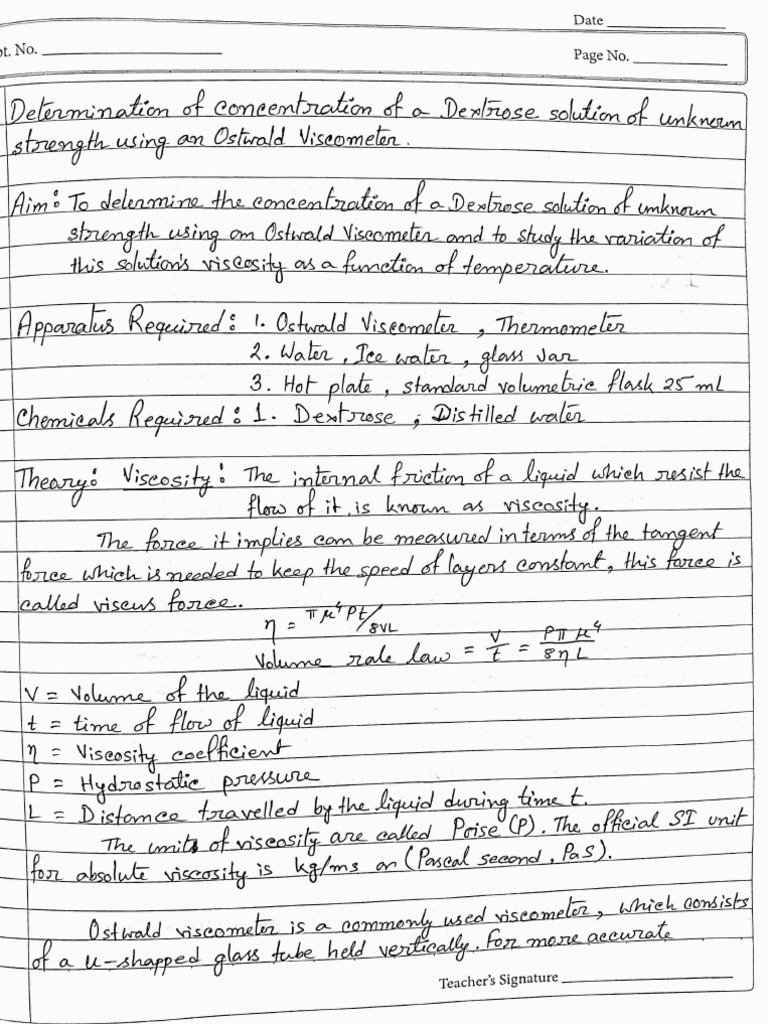 Date
pt. No.
Page No.
Determination of concentration of a Dextrose solution of unknown
strength using an Ostwald Viscometer.
Aim: To determine the concentration of a Dextrose solution of unknown
strength using an Ostwald Viscometer and to study the variation of
this solution's viscosity as a function of temperature.
Apparatus Required: 1. Ostwald Viscometer, Thermometer
2. Water, Ice water, glass Jar
3. Hot plate, standard volumetric flask 25 mL
Chemicals Required: 1. Dextrose, Distilled water
Theory: Viscosity: The internal friction of a liquid which resist the
flow of it, is known as viscosity.
The force it implies can be measured in terms of the tangent
force which is needed to keep the speed of layers constant, this force is
called viscus force.
η = πr⁴Pt/8VL
Volume rate law = V/t = Pπr⁴/8ηL
V = Volume of the liquid
t = time of flow of liquid
η = Viscosity coefficient
P = Hydrostatic pressure
L = Distance travelled by the liquid during time t.
The units of viscosity are called Poise (P). The official SI unit
for absolute viscosity is kg/ms or (Pascal second, PaS).
Ostwald viscometer is a commonly used viscometer, which consists
of a u-shapped glass tube held vertically. For more accurate
Teacher's Signature